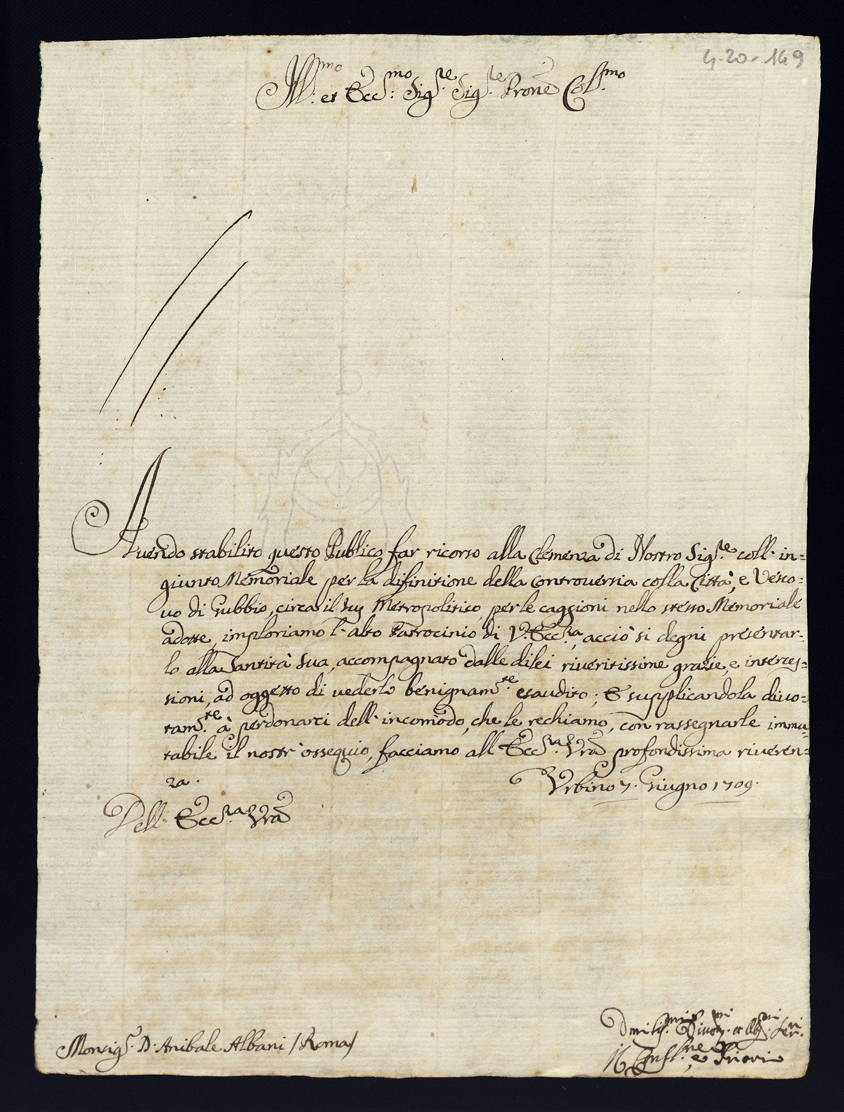 4-20-149
Ill.mo et Ecc.mo Sig.re Sig.re Prone Col.mo
Avendo stabilito questo Publico far ricorso alla Clemenza di Nostro Sig.re coll' in=
giunto Memoriale per la difinitione della Controversia colla Città, e Vesco=
vo di Gubbio, circa il Metropolitico, per le caggioni nello stesso Memoriale
adotte, imploriamo l'alto Patrocinio di V. Ecc.za, acciò si degni presentar=
lo alla Santità Sua, accompagnato dalle di lei riveritissime grazie, e interces=
sioni, ad oggetto di vederlo benignam.te esaudito; E supplicandola divo=
tam.te à perdonarci dell' incomodo, che le rechiamo, con rassegnarle immu
tabile il nostr' ossequio, facciamo all' Ecc.za Vra profondissima riveren=
za.
Urbino 7. Giugno 1709.
Dell' Ecc.za Vra
Divot. et Obl. Ser.
Il Conf.re, e Priori
Monsig.r D. Anibale Albani /Roma/